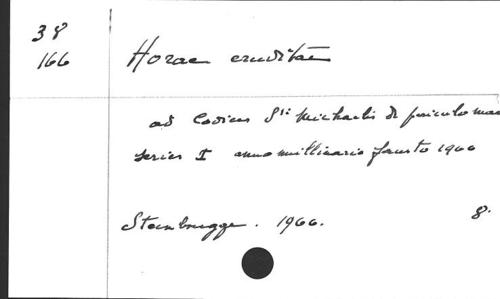 38
166
Horae eruditae
ad Codices Sti Michaelis de periculo mar
series I anno millinario fausto 1966
Steenbrugge. 1966.
8.